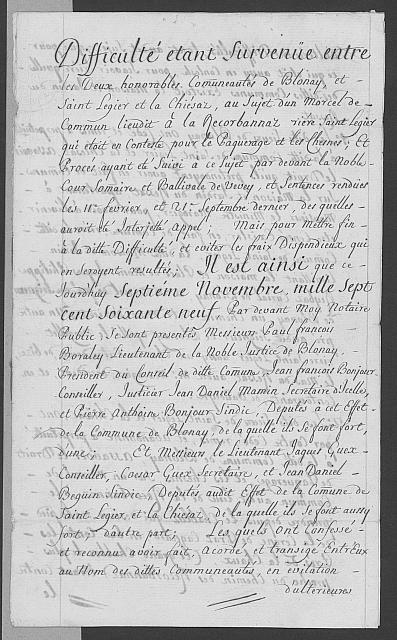 Difficulté étant Survenüe entre
les Deux honorables Comuneautés de Blonay, et
Saint Legier et la Chiésaz, au Sujet d'un Morcel de
Commun lieudit à la Recorbannaz riére Saint Legier
qui étoit en Conteste pour le Paquerage et les Chesnes; Et
Procés ayant été Suivi à ce Sujet par devant la Noble
Cour Somaire et Ballivale de Vevey, et Sentences rendues
les 11e. fevrier, et 21e. Septembre dernier, des quelles
auroit été Interjetté appel; Mais pour Mettre fin
à la ditte Difficulté, et eviter les fraix Dispendieux qui
en Seroyent resultés; Il est ainsi que ce
Jourdhuy Septiéme Novembre, mille Sept
cent Soixante neuf Par devant Moy Notaire
Public, Se sont presentés Messieurs Paul francois
Boraley Lieutenant de la Noble Justice de Blonay,
President du Conseil de ditte Comune, Jean francois Bonjour
Conseiller, Justicier Jean Daniel Mamin Secretaire d'Icelle,
et Pierre Anthoine Bonjour Sindic, Deputés à cet Effet
de la Commune de Blonay, de la quelle ils Se font fort
d'une; Et Messieurs le Lieutenant Jaques Guex
Conseiller, Caesar Guex Secretaire, et Jean Daniel
Beguin Sindic, Deputés audit Effet de la Comune de
Saint Legier et la Chiésaz, de la quelle ils Se font aussy
fort, d'autre part; Les quels ont Confessé
et reconnu avoir fait, Acordé, et transigé Entr'Eux
au Nom des dittes Communeautés, en évitation
d'ulterieures